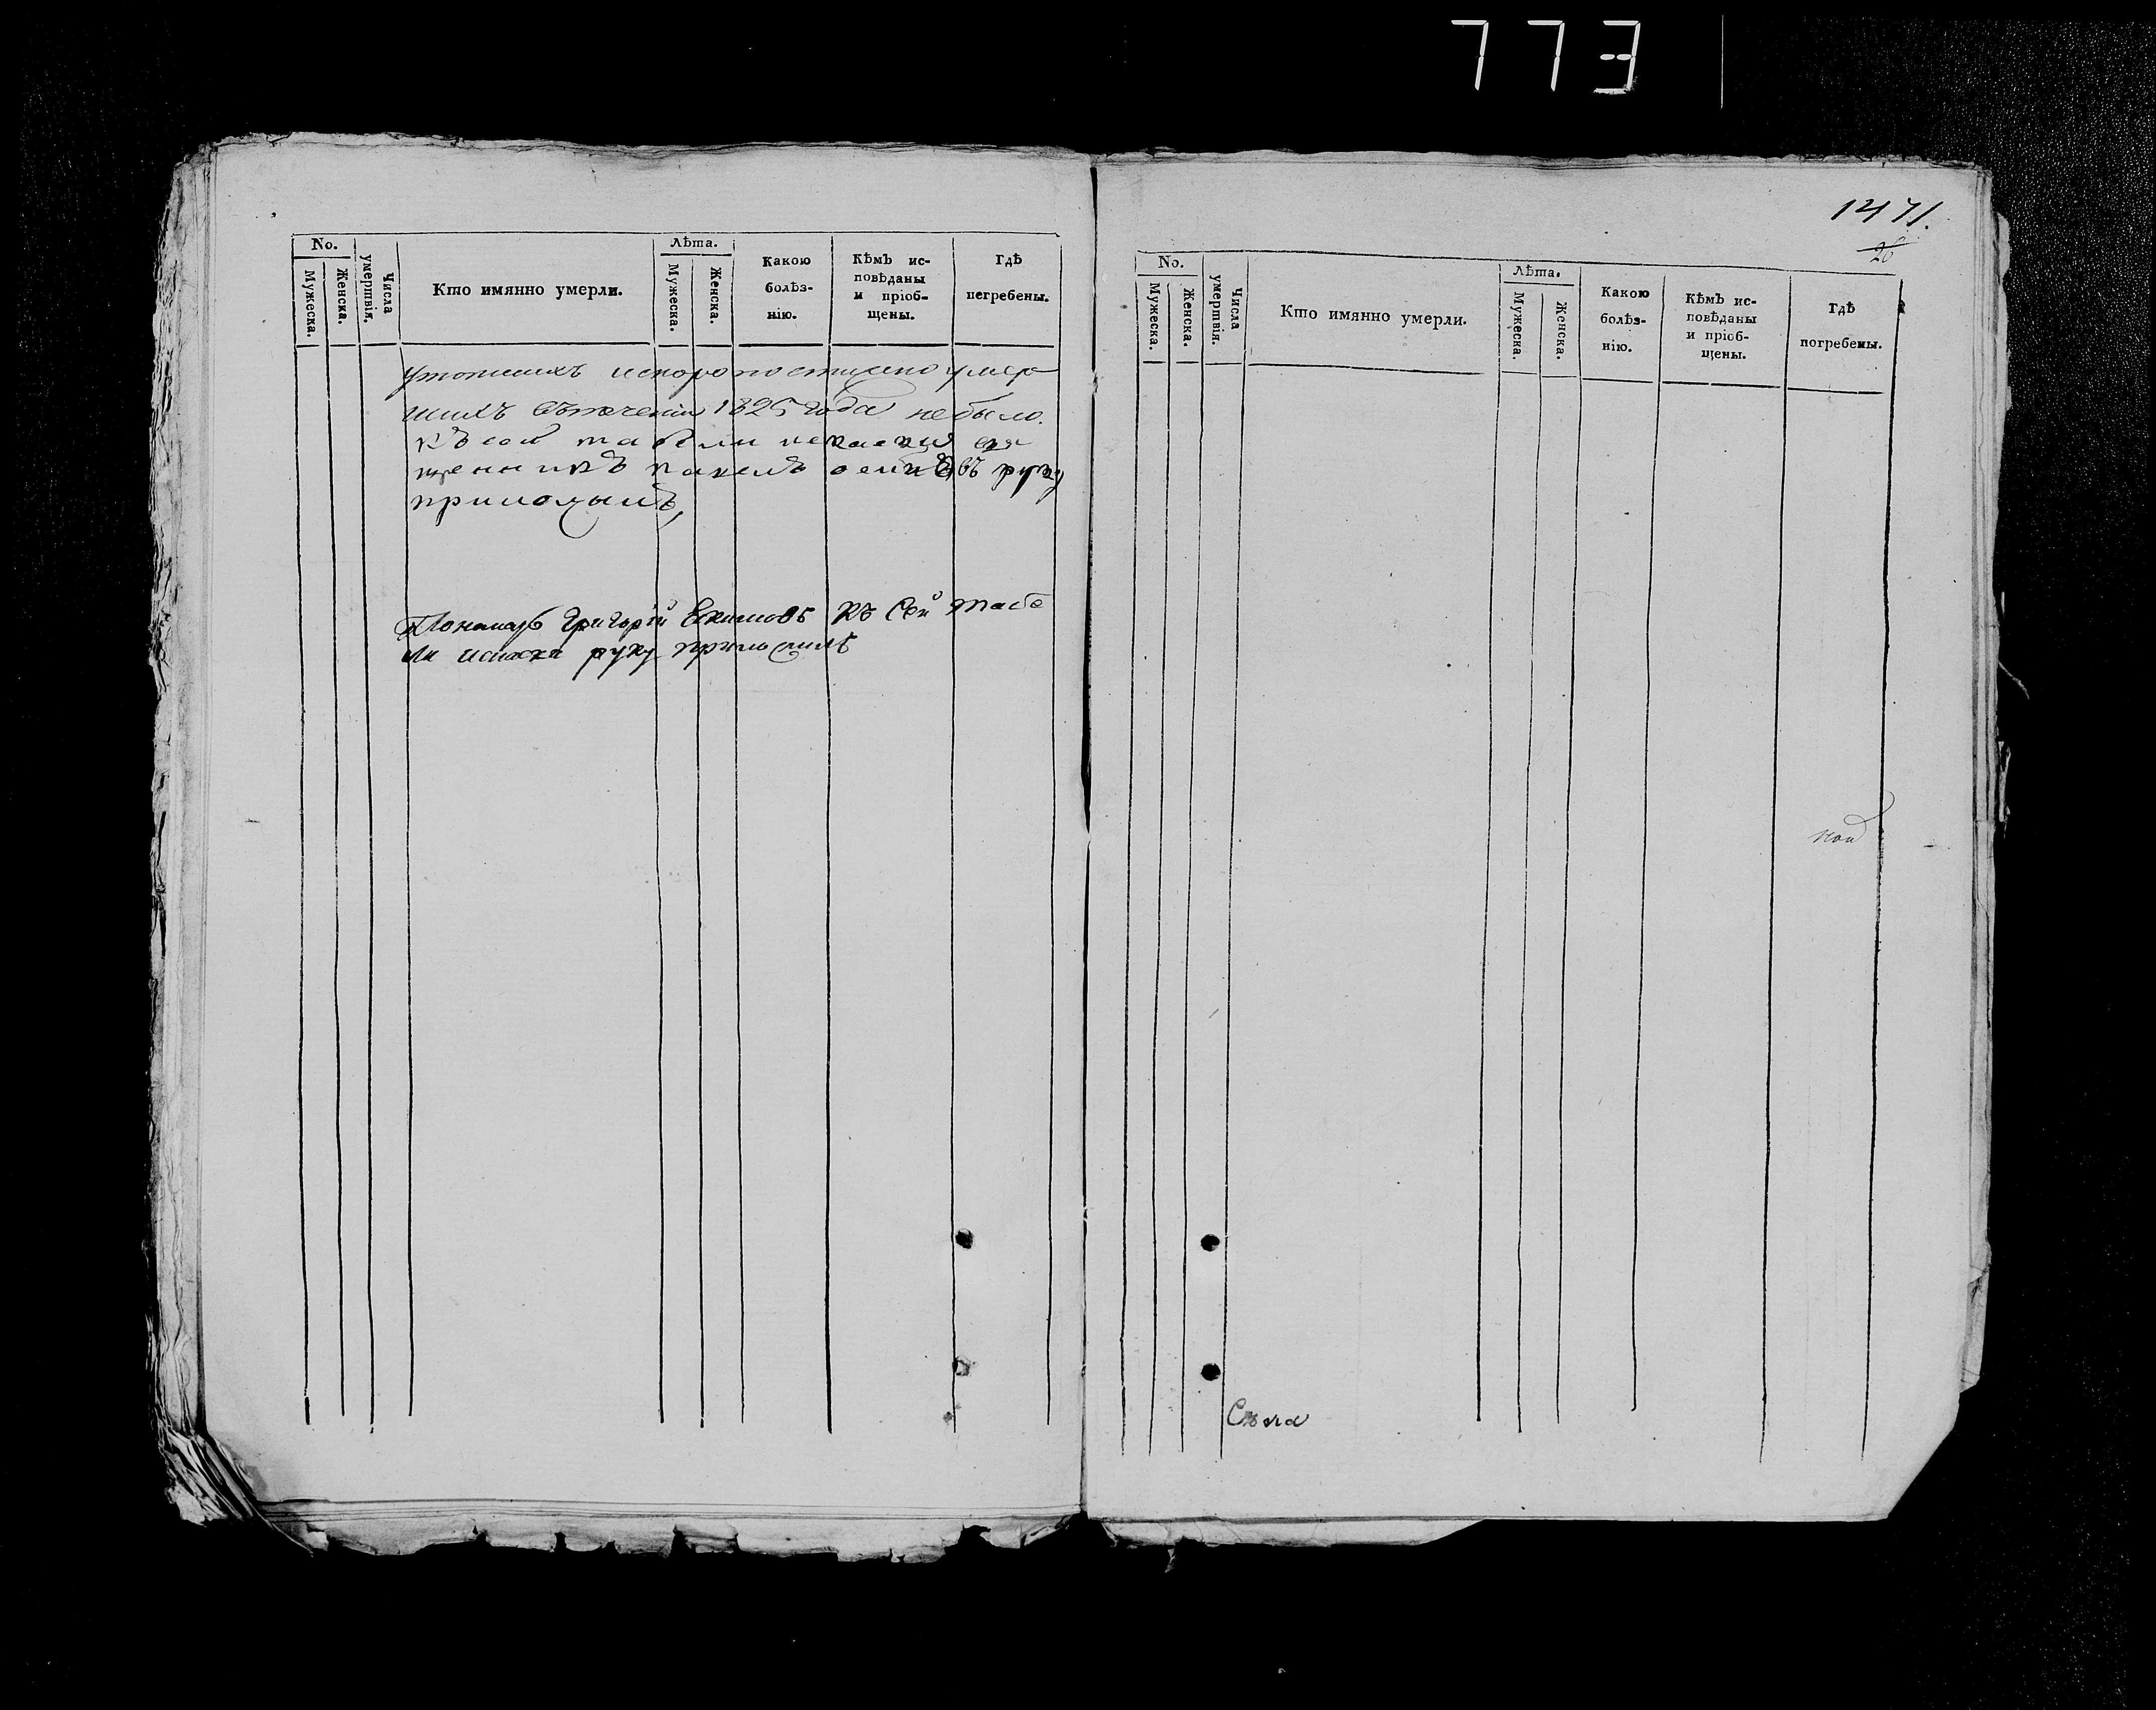 773
No.
Мужеска.
Женска.
Числа умертвія.
Кто имянно умерли.
Лѣта.
Мужеска.
Женска.
Какою
болѣз-
нію.
Кѣмъ ис-
повѣданы
и пріоб-
щены.
Гдѣ
погребены.
утопшихъ искоропостижно умер
шихъ втечении 1825 года небыло.
Къ сей табели
щенникъ руку
приложилъ,
Пономарь Григорій Екимовъ Къ Сей табе
ли руку приложилъ
1471.
26
No.
Мужеска.
Женска.
Числа умертвія.
Кто имянно умерли.
Лѣта.
Мужеска.
Женска.
Какою
болѣз-
нію.
Кѣмъ ис-
повѣданы
и пріоб-
щены.
Гдѣ
погребены.